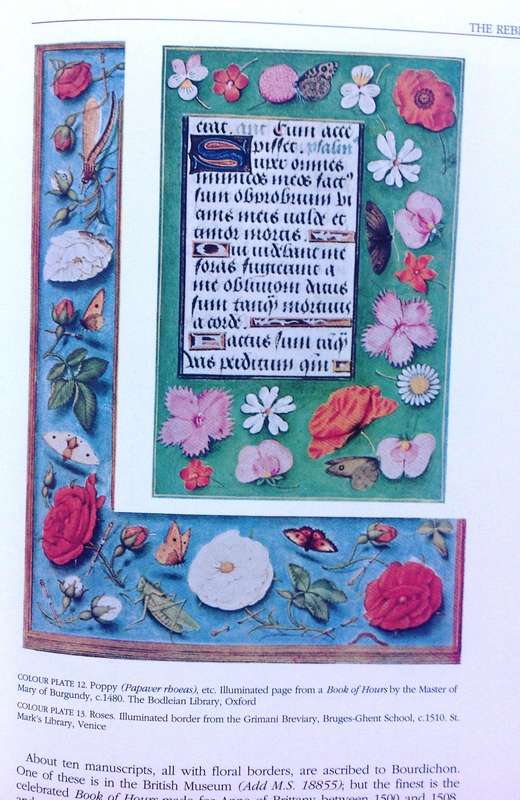 THE
Cum acce
pisset. psalm
Super omnes
inimicos meos
sum obprobrium vi
cinis meis valde et
timor
Qui videbant me
foras fugierunt a
me oblivioni datus
sum tanq̄ mortuus
a corde.
Factus sum tanq̄
vas perditum qm̄
COLOUR PLATE 12. Poppy (Papaver rhoeas), etc. Illuminated page from a Book of Hours by the Master of
Mary of Burgundy, c.1480. The Bodleian Library, Oxford
COLOUR PLATE 13. Roses. Illuminated border from the Grimani Breviary, Bruges-Ghent School, c.1510. St.
Mark's Library, Venice
About ten manuscripts, all with floral borders, are ascribed to Bourdichon.
One of these is in the British Museum (Add M.S. 18855); but the finest is the
celebrated Book of Hours made for Anne of Brittany between 1500 and 1508,